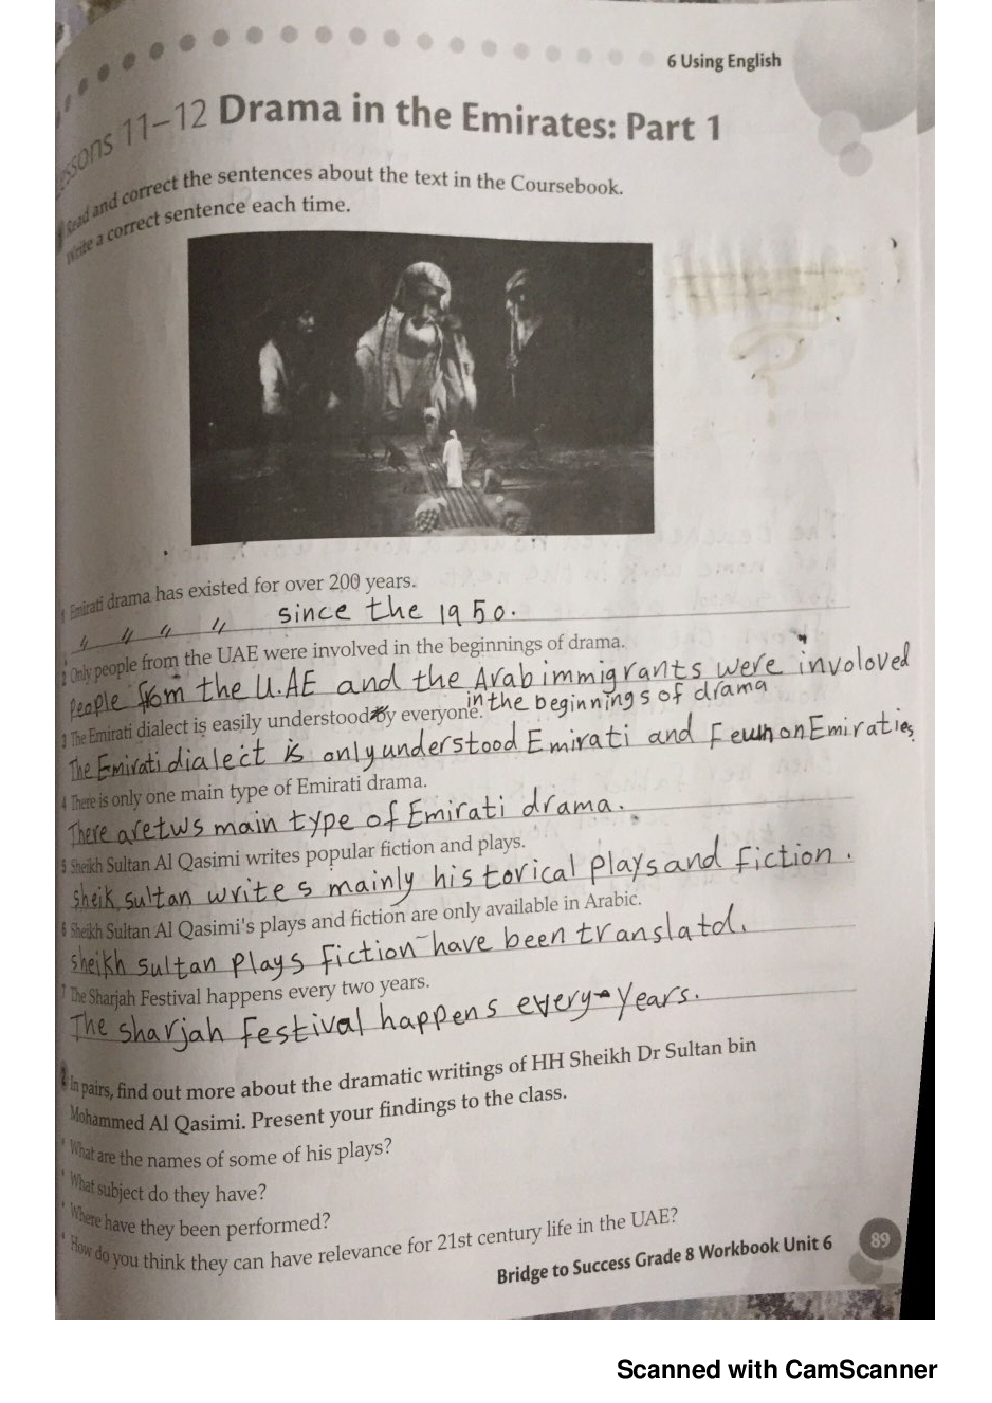 6 Using English
Lessons 11–12 Drama in the Emirates: Part 1
1 Read and correct the sentences about the text in the Coursebook.
Write a correct sentence each time.
1 Emirati drama has existed for over 200 years.
" " " " since the 1950.
2 Only people from the UAE were involved in the beginnings of drama.
People from the U.AE and the Arab immigrants were involoved
in the beginnings of drama
3 The Emirati dialect is easily understood by everyone.
The Emirati dialect is only understood Emirati and Emiraties
4 There is only one main type of Emirati drama.
There are tws main type of Emirati drama.
5 Sheikh Sultan Al Qasimi writes popular fiction and plays.
sheik sultan writes mainly historical plays and fiction.
6 Sheikh Sultan Al Qasimi's plays and fiction are only available in Arabic.
sheikh sultan plays fiction have been translatd.
7 The Sharjah Festival happens every two years.
The sharjah festival happens every years.
2 In pairs, find out more about the dramatic writings of HH Sheikh Dr Sultan bin
Mohammed Al Qasimi. Present your findings to the class.
• What are the names of some of his plays?
• What subject do they have?
• Where have they been performed?
• How do you think they can have relevance for 21st century life in the UAE?
Bridge to Success Grade 8 Workbook Unit 6
89
Scanned with CamScanner